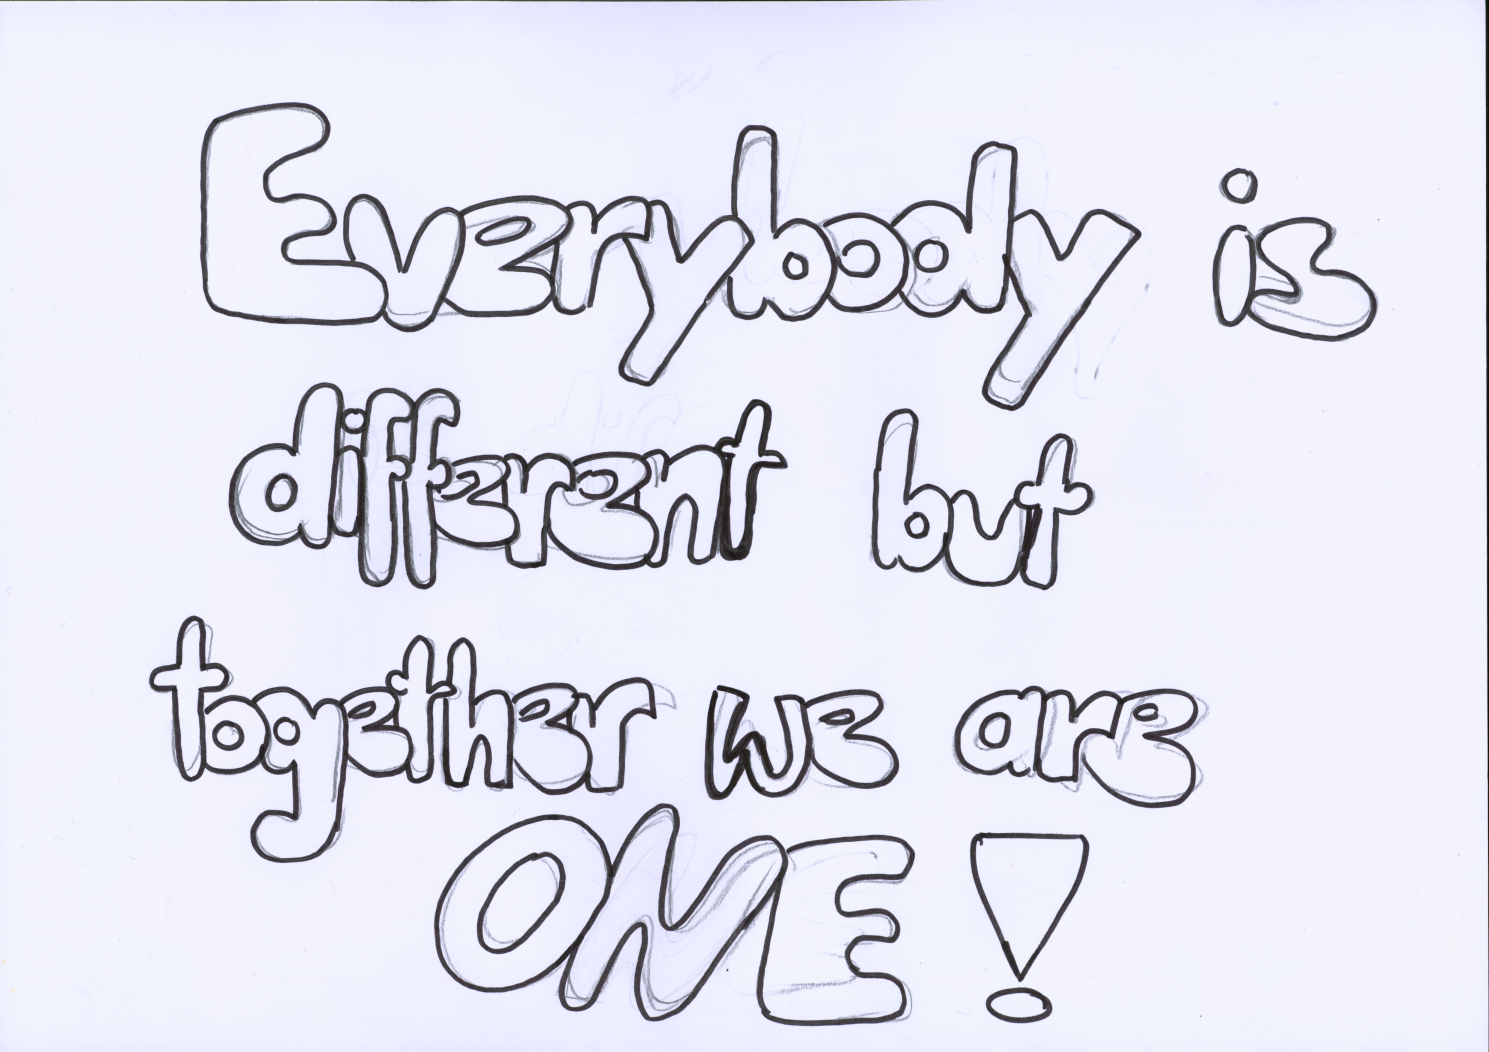 Everybody is
different but
together we are
ONE!